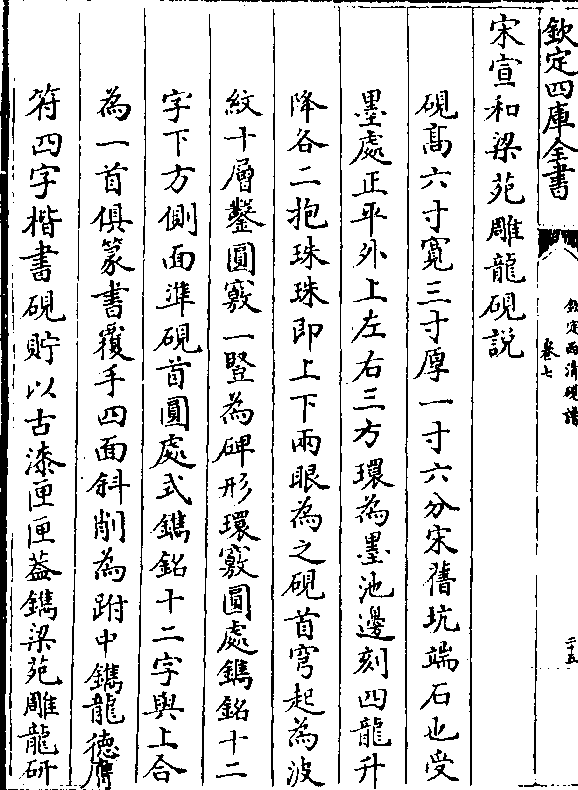 欽定四庫全書
欽定西清硯譜
卷七
二十五
宋宣和梁苑雕龍硯說
硯髙六寸寛三寸厚一寸六分宋舊坑端石也受
墨處正平外上左右三方環為墨池邊刻四龍升
降各二抱珠珠即上下兩眼為之硯首穹起為波
紋十層鑿圓竅一豎為碑形環竅圓處鐫銘十二
字下方側面準硯首圓處式鐫銘十二字與上合
為一首俱篆書覆手四面斜削為跗中鐫龍德膺
符四字楷書硯貯以古漆匣匣葢鐫梁苑雕龍研